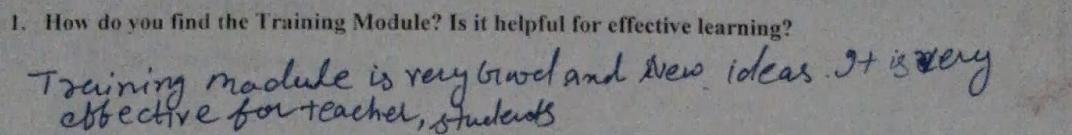 1. How do you find the Training Module? Is it helpful for effective learning?
Training module is very Good and New ideas. It is very
effective for teacher, students